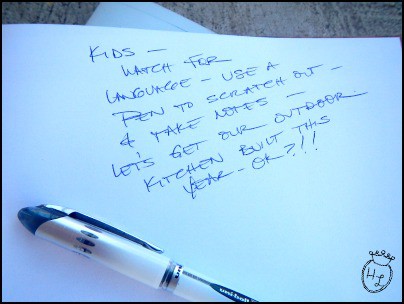 KIDS —
WATCH FOR
LANGUAGE - USE A
PEN TO SCRATCH OUT -
& TAKE NOTES —
LET'S GET OUR OUTDOOR
KITCHEN BUILT THIS
YEAR - OK?!!
uni-ball
HL